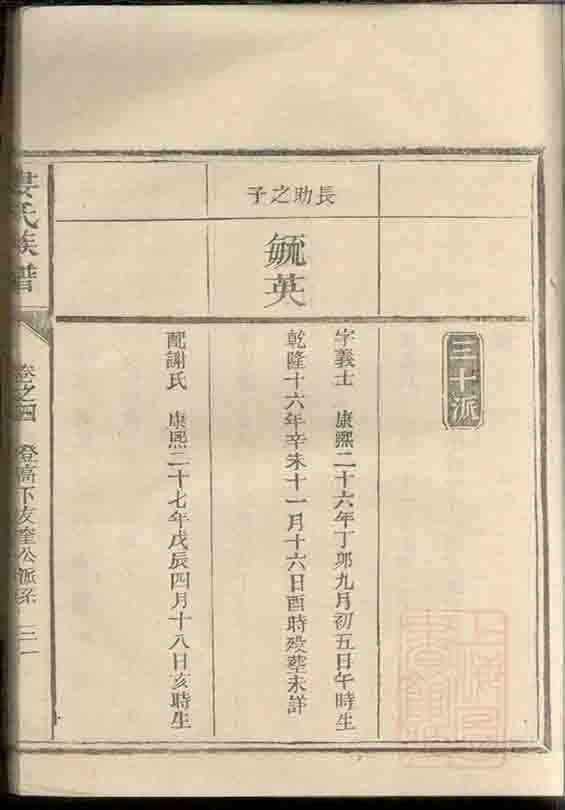 三十派
長助之子
毓英
字義士　康熙二十六年丁卯九月初五日午時生
乾隆十六年辛未十一月十六日酉時歿塟未詳
配謝氏　康熙二十七年戊辰四月十八日亥時生
氏族譜
卷之四　登高下友奎公派系